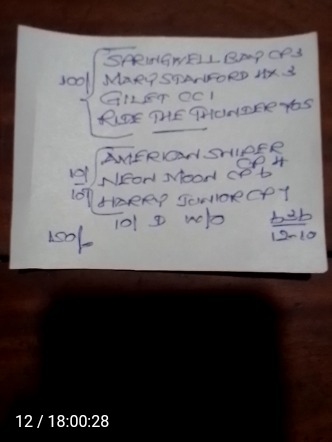 SPRINGWELL BAY CP3
100/ MARY STANFORD HX 3
GILET CC1
RIDE THE THUNDER 705
10/ AMERICAN SNIPER CP 4
10/ NEON MOON CP 6
HARRY JUNIOR CP 7
10/ D W/O
150/-
12-10
12 / 18:00:28